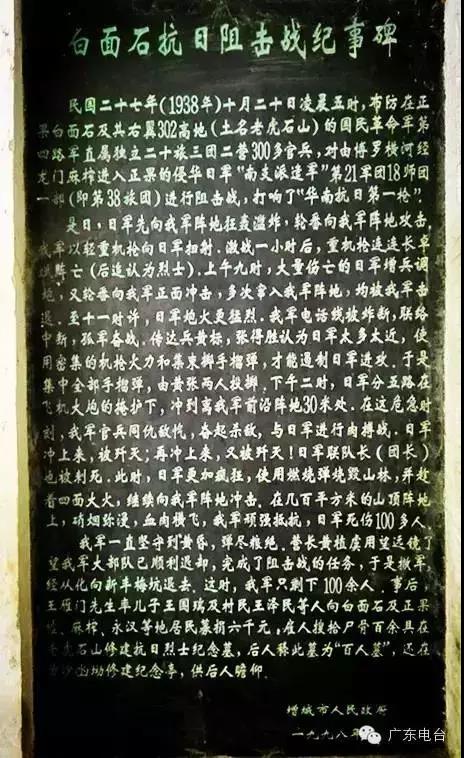 白面石抗日阻击战纪事碑
民国二十七年(1938年)十月二十日凌晨五时,布防在正
果白面石及其右翼302高地(土名老虎石山)的国民革命军第
四路军直属独立二十旅三团二营300多官兵,对由博罗横河经
龙门麻榨进入正果的侵华日军"南支派遣军"第21军团18师团
一部(即第38旅团)进行阻击战,打响了"华南抗日第一枪".
是日,日军先向我军阵地狂轰滥炸,轮番向我军阵地攻击.
我军以轻重机枪向日军扫射.激战一小时后,重机枪连连长卓
阵亡(后追认为烈士).上午九时,大量伤亡的日军增兵调
炮,又轮番向我军正面冲击,多次窜入我军阵地,均被我军击
退.至十一时许,日军炮火更猛烈.我军电话线被炸断,联络
中断,孤军奋战.传达兵黄标,张得胜认为日军太多太近,使
用密集的机枪火力和集束掷手榴弹,才能遏制日军进攻.于是
集中全部手榴弹,由黄张两人投掷.下午二时,日军分五路在
飞机大炮的掩护下,冲到离我军前沿阵地30米处.在这危急时
刻,我军官兵同仇敌忾,奋起杀敌,与日军进行肉搏战.日军
冲上来,被歼灭;再冲上来,又被歼灭!日军联队长(团长)
也被刺死.此时,日军更加疯狂,使用燃烧弹烧毁山林,并趁
着四面大火,继续向我军阵地冲击.在几百平方米的山顶阵地
上,硝烟弥漫,血肉横飞,我军顽强抵抗,日军死伤100多人.
我军一直坚守到黄昏,弹尽粮绝.营长黄植虞用望远镜了
望我军大部队已顺利退却,完成了阻击战的任务,于是撤军,
经从化向新丰梅坑退去.这时,我军只剩下100余人.事后,
王雁门先生率儿子王国瑞及村民王泽民等人向白面石及正果
墟、麻榨、永汉等地居民募捐六千元,雇人搜捡尸骨百余具在
老虎石山修建抗日烈士纪念墓,后人称此墓为"百人墓",还在
坳修建纪念亭,供后人瞻仰.
增城市人民政府
一九九八年
广东电台